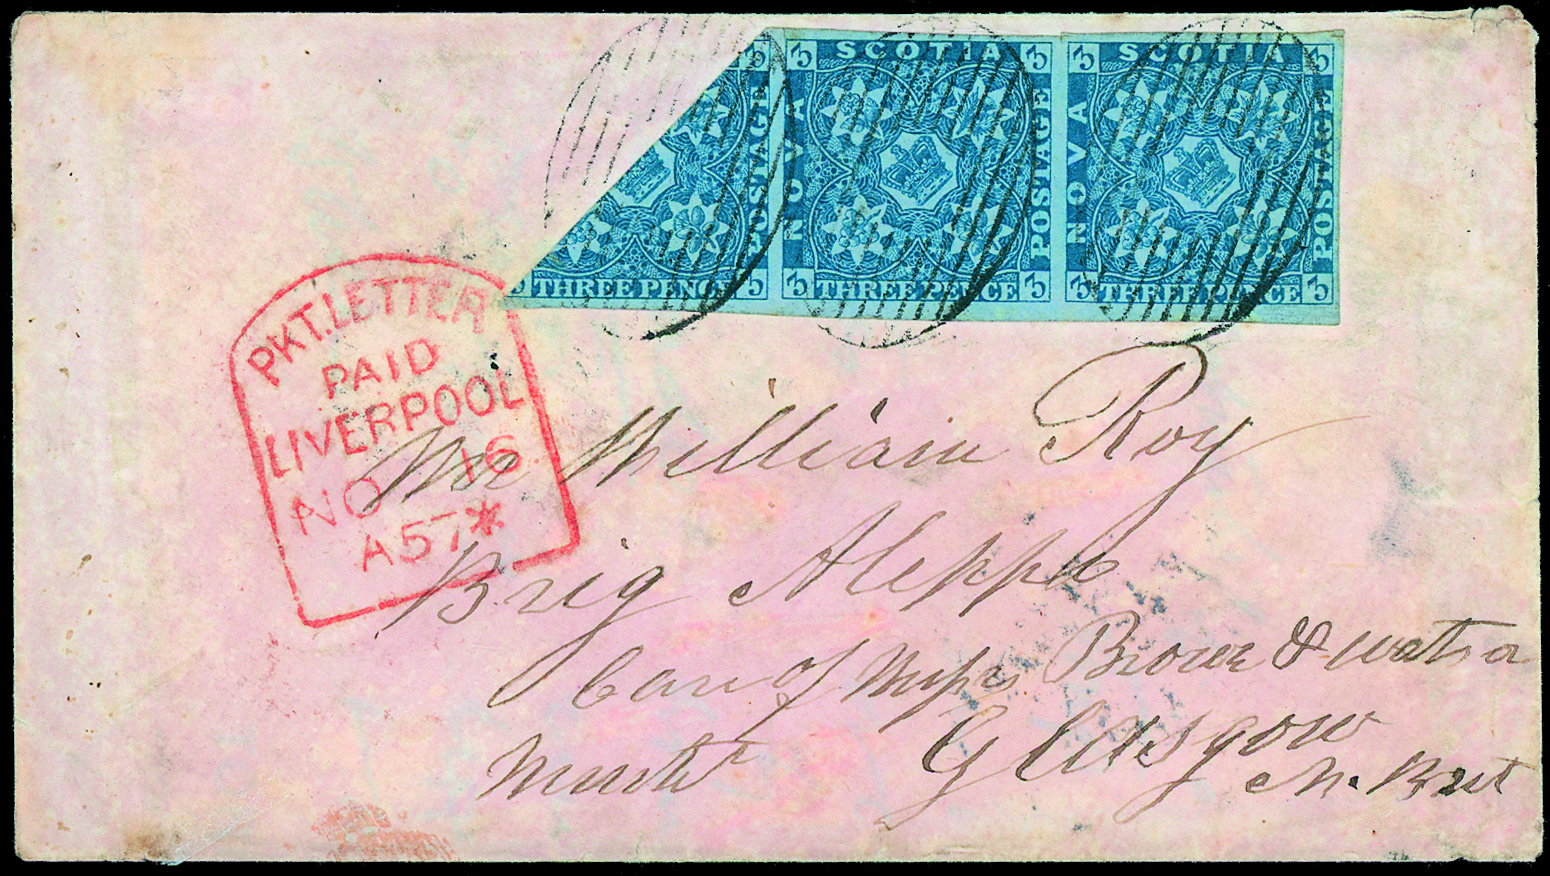 SCOTIA SCOTIA
NOVA NOVA
POSTAGE POSTAGE POSTAGE
THREE PENCE THREE PENCE THREE PENCE
3 3 3 3 3 3 3 3 3 3
PKT. LETTER
PAID
LIVERPOOL
NO 16
A57*
Mr William Roy
Brig Aleppo
Care of Messrs Brown & Watson
Glasgow
N. Brit